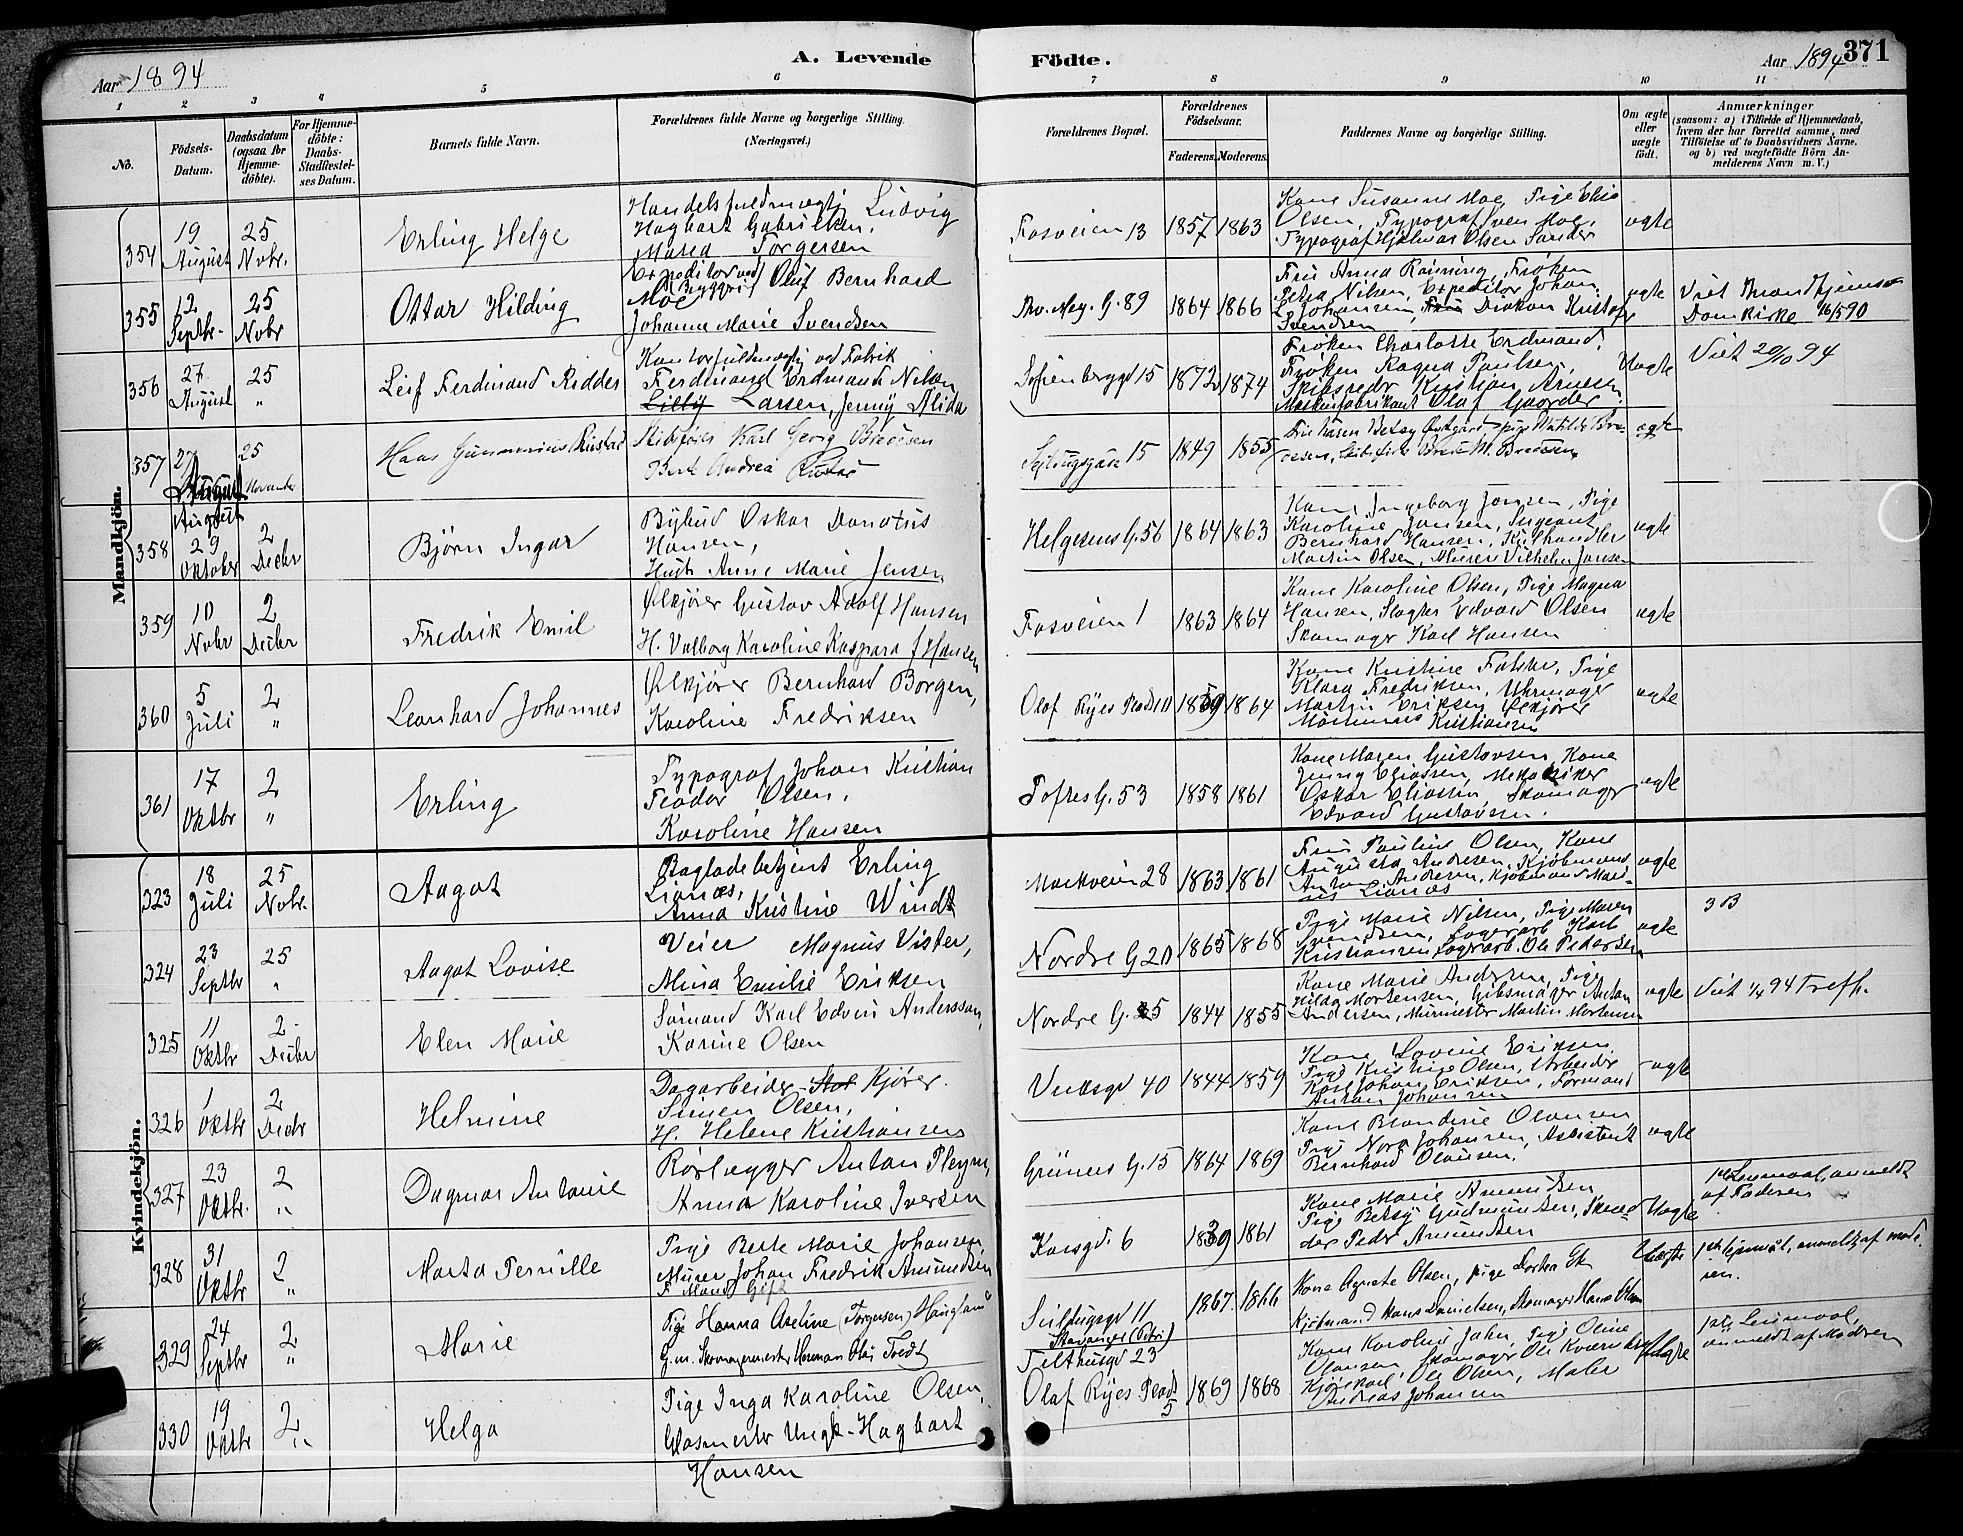 Aar 1894
A. Levende Födte.
Aar 1894 371
1 2 3 4 5 6 7 8 9 10 11
No.
Födsels-Datum.
Daabsdatum (ogsaa for Hjemme-döbte).
For Hjemme-döbte: Daabs-Stadfæstel-ses Datum.
Barnets fulde Navn.
Forældrenes fulde Navne og borgerlige Stilling. (Næringsvei.)
Forældrenes Bopæl.
Forældrenes Födselsaar.
Faderens. Moderens.
Faddernes Navne og borgerlige Stilling.
Om ægte eller uægte födt.
Anmærkninger
(saasom: a) i Tilfælde af Hjemmedaab, hvem der har forrettet samme, med Tilföielse af to Daabsvidners Navne. og b) ved uægtefödte Börn An-melderens Navn m. V.)
Mandkjön.
354 19 August 25 Novbr. Erling Helge
Handelsfuldmægtig Ludvig
Hagbart Gabrielsen,
Maria Torgersen
Fosveien 13 1857 1863
Kone Susanne Moe, Pige Elise
Olsen, Typograf Sven Moe,
Typograf Hjalmar Olsen Sander
ægte
355 12 Septbr. 25 Novbr Ottar Hilding
Expeditør ved Bryggeri Oluf Bernhard
Moe
Johanne Marie Svendsen
Thv. Mey. G. 89 1864 1866
Fru Anna Rønning, Frøken
Petra Nilsen, Expeditør Johan
Johansen, Diakon Kristofer
Svendsen
ægte
Viet Trondhjems
Domkirke 16/5 90
356 27 August 25 " Leif Ferdinand Ridder
Kontorfuldmægtig ved Fabrik
Ferdinand Erdmands Nilsen
Larsen, Jenny Alida
Sofienberggd 15 1872 1874
Frøken Charlotte Erdmand,
Frøken Ragna Paulsen,
Skibsreder Kristian Arnesen
Maskinfabrikant Olaf Gaarder
Uægte
Viet 20/10 94
357 27 August 25 November Hans Gunnerius Rustad
Skibsfører Karl Georg Bredesen
Berte Andrea Rustad
15 1849 1855
ægte
358 29 Oktober 2 Decbr Bjørn Ingar
Bybud Oskar Donatus
Hansen,
Hust. Anne Marie Jensen
Helgesens G. 56 1864 1863
Kone Ingeborg Jonsen, Pige
Karoline Jansen, Sergeant
Bernhard Hansen, Kulhandler
Martin Olsen, Murer Vilhelm Jansen
ægte
359 10 Novbr 2 Decbr Fredrik Emil
Ølkjører Gustav Adolf Hansen
H. Valborg Karoline Kaspara f Hansen
Fosveien 1 1863 1864
Kone Karoline Olsen, Pige Magna
Hansen, Slagter Edvard Olsen
Skomager Karl Hansen
ægte
360 5 Juli 2 " Leonhard Johannes
Ølkjører Bernhard Borgen,
Karoline Fredriksen
Olaf Ryes Plads 11 1859 1864
Kone Kristine Falske, Pige
Klara Fredriksen, Uhrmager
Martin Eriksen, Ølkjører
Kristiansen
ægte
361 17 Oktbr 2 " Erling
Typograf Johan Kristian
Teodor Olsen.
Karoline Hansen
Toftes G. 53 1858 1861
Kone Maren Gustavsen, Kone
Jenny Eliassen, Mekaniker
Oskar Eliassen, Skomager
Edvard Gustavsen.
ægte
Kvindekjön.
323 18 Juli 25 Novbr. Aagot
Erling
Lionæs,
Anna Kristine Windt
Markveien 28 1863 1861
Frue Pauline Olsen, Kone
Augusta Andresen, Kjøbmand
Anton Andersen, Kjøbmand
Lionæs
ægte
324 23 Septbr 25 " Aagot Lovise
Veier Magnus Vister,
Alma Emilie Eriksen
Nordre G 20 1865 1868
Pige Marie Nilsen, Pige Maren
Svendsen, Lagerarb Karl
Kristiansen, Lagerarb. Ole Pedersen
ægte
3 B
325 11 Oktbr 2 Decbr Elen Marie
Sømand Karl Edvin Anderssøn,
Karine Olsen
Nordre G. 5 1844 1855
Kone Marie Andersen, Pige
Hilda Mortensen, Gibsmager Anton
Andersen, Murmester Martin Mortensen
ægte
Viet 94 Trefh.
326 1 Oktbr 2 Decbr Helmine
Dagarbeider Kjører.
Simen Olsen,
H. Helene Kristiansen
40 1844 1859
Kone Lovise Eriksen
Pige Kristine Olsen, Arbeider
Karl Johan Eriksen, Formand
Anton Johansen
ægte
327 23 Oktbr. 2 " Dagmar Antonie
Rørlægger Anton Pleym,
Anna Karoline Iversen
Grüners G. 15 1864 1869
Kone Blandine Olausen
Pige Nora Johansen, Assistent
Bernhard Olausen.
ægte
328 31 Oktbr 2 " Marta Pernille
Pige Berte Marie Johansen
Murer Johan Fredrik Amundsen
F. Mand Gift
Korsgd. 6 1839 1861
Kone Marie Amundsen
Pige Betsy Gudmundsen, Skræd
der Peder Amundsen
Uægte
1ste Leiermaal, anmeldt
af Faderen
329 24 Septbr 2 " Marie
Pige Hanna Aseline (Torgersen) Haugland
G.m. Skomagermester Herman Olai Tvedt
Seilduggd 11
Stavanger (Petri) 1867. 1866
Kone Agnete Olsen, Pige Dortea
Kjøbmand Hans Danielsen, Skomager Hans Olsen
Uægte
1ste leiermål, anmeldt af mode
ren.
330 19 Oktbr 2 " Helga
Pige Inga Karoline Olsen,
Glasmester Ungk. Hagbart
Hansen
Tilthusgd 23
Olaf Ryes Plads 5 1869 1868
Kone Karoline Jahn, Pige Oline
Olausen, Skomager Ole Kværnberg
Kjørekarl Ole Olsen, Maler
Andreas Johansen
Uægte
1ste Leiermaal,
anmeldt af Modren